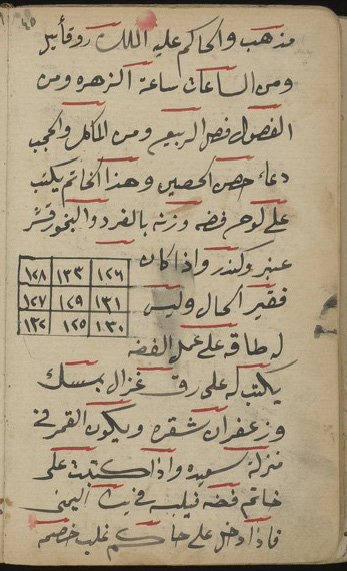 مذهب والحاكم عليه الملك روقائيل
ومن الساعات ساعة الزهره ومن
الفصول فصل الربيع ومن المأكل والحجب
دعاء حصن الحصين وهذا الخاتم يكتب
على لوح فضه وزنه بالفرد والبخور قشر
عنبر وكندر واذا كان
فقير الحال وليس
له طاقه على عمل الفضه
١٢٦ ١٣٣ ١٢٨
١٣١ ١٢٩ ١٢٧
١٣٠ ١٢٥ ١٣٢
يكتب له على رق غزال بمسك
وزعفران شقره ويكون القمر في
منزلة سعيده واذا كتبت على
خاتم فضه فيلبسه في اليمنى
فاذا دخل على حاكم غلب خصمه